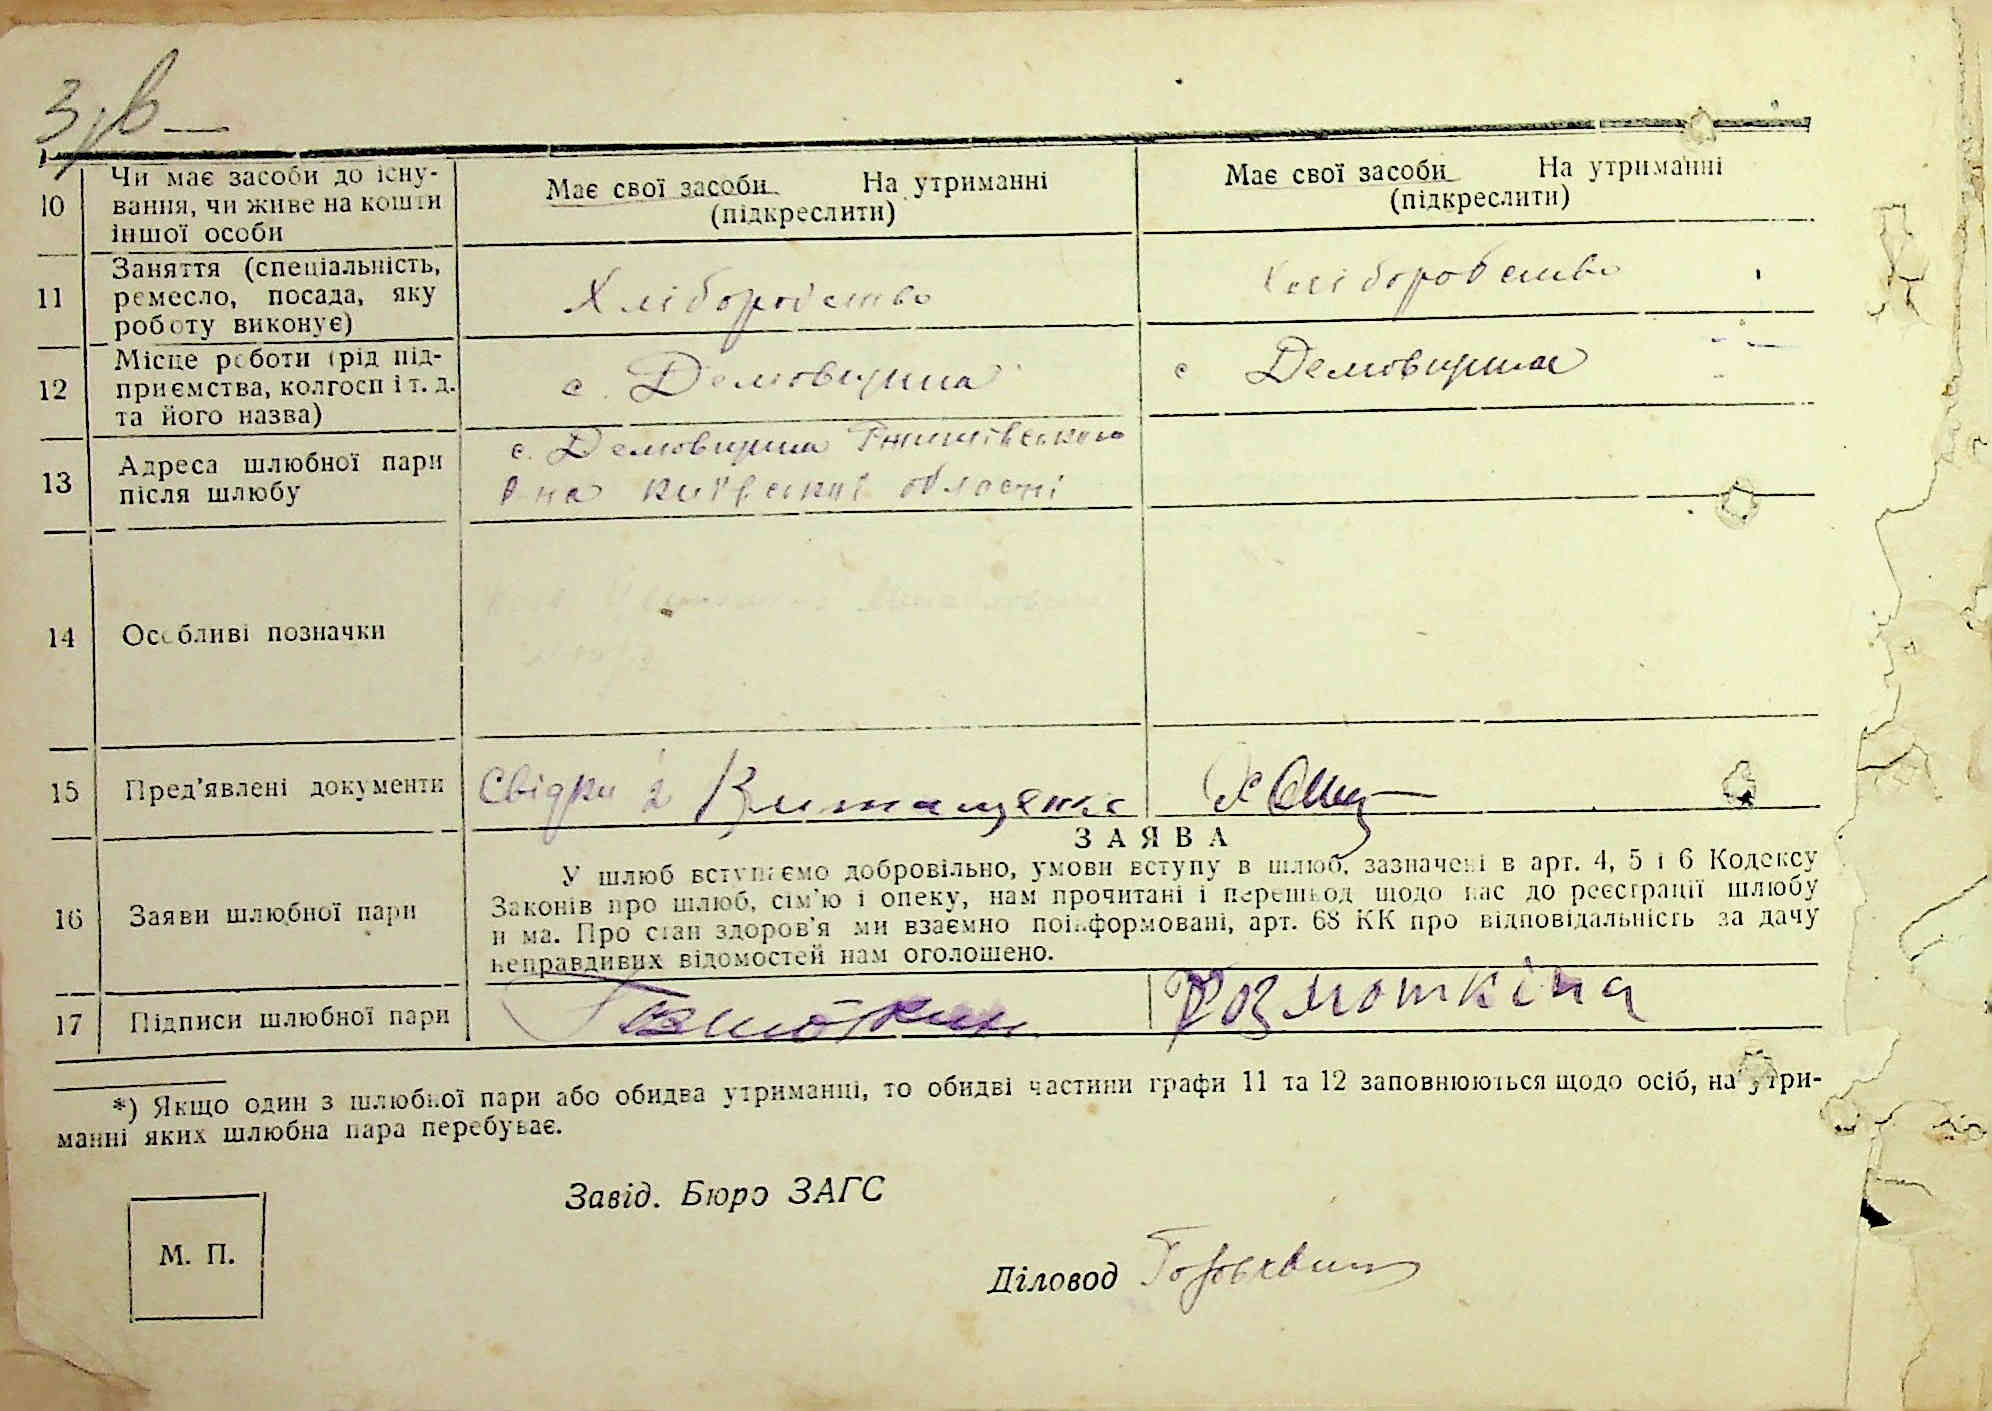 З/в —
10
Чи має засоби до існу-
вання, чи живе на кошти
іншої особи
Має свої засоби На утриманні
(підкреслити)
Має свої засоби На утриманні
(підкреслити)
11
Заняття (спеціальність,
ремесло, посада, яку
роботу виконує)
Хліборобство
Хліборобство
12
Місце роботи (рід під-
приємства, колгосп і т. д.
та його назва)
с. Демовщина
с Демовщина
13
Адреса шлюбної пари
після шлюбу
с. Демовщина Ржищівського
р на Київської області
14
Особливі позначки
15
Пред'явлені документи
Свідки 2
16
Заяви шлюбної пари
ЗАЯВА
У шлюб вступаємо добровільно, умови вступу в шлюб, зазначені в арт. 4, 5 і 6 Кодексу
Законів про шлюб, сім'ю і опеку, нам прочитані і перешкод щодо нас до реєстрації шлюбу
н ма. Про стан здоров'я ми взаємно поінформовані, арт. 68 КК про відповідальність за дачу
неправдивих відомостей нам оголошено.
17
Підписи шлюбної пари
*) Якщо один з шлюбної пари або обидва утриманці, то обидві частини графи 11 та 12 заповнюються щодо осіб, на утри-
манні яких шлюбна пара перебуває.
Завід. Бюро ЗАГС
М. П.
Діловод